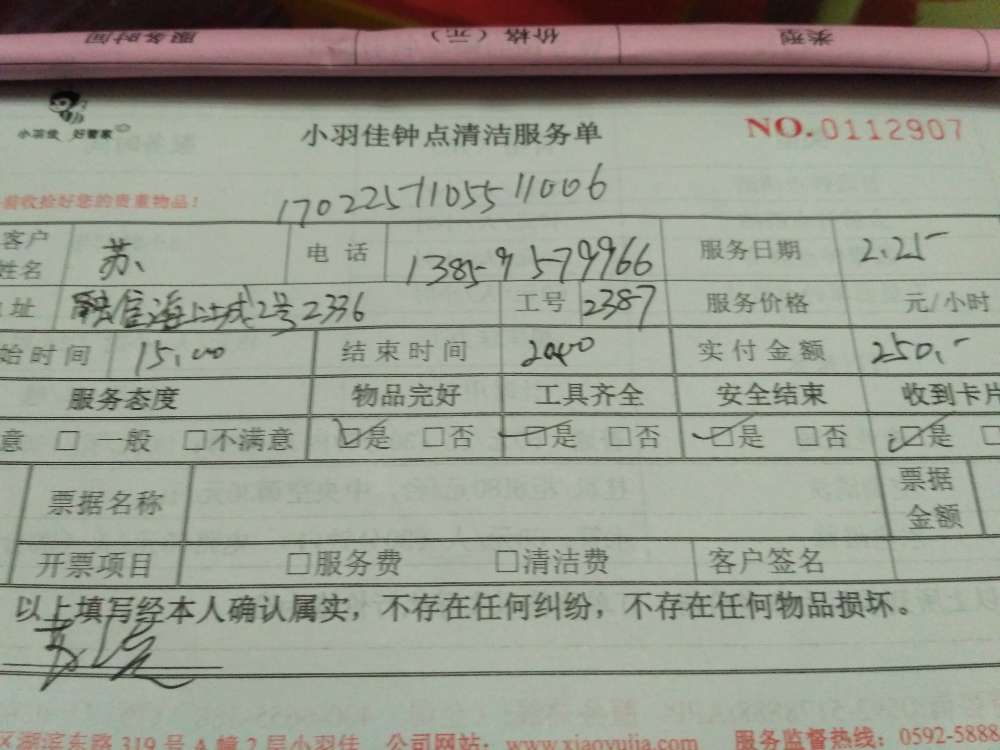 服务时间 价格（元） 类型
小羽佳 好管家
小羽佳钟点清洁服务单
NO.0112907
收拾好您的贵重物品！
17022571105511006
客户姓名 苏、 电话 13859579966 服务日期 2.25
址 融信海上城2号2336 工号 2387 服务价格 元/小时
始时间 15:00 结束时间 实付金额 250.-
服务态度 物品完好 工具齐全 安全结束 收到卡片
意 □ 一般 □不满意 □是 □否 □是 □否 □是 □否 □是 □
票据名称 票据金额
开票项目 □服务费 □清洁费 客户签名
以上填写经本人确认属实，不存在任何纠纷，不存在任何物品损坏。
区湖滨东路319号A幢2层小羽佳 公司网站：www.xiaoyujia.com 服务监督热线：0592-5888